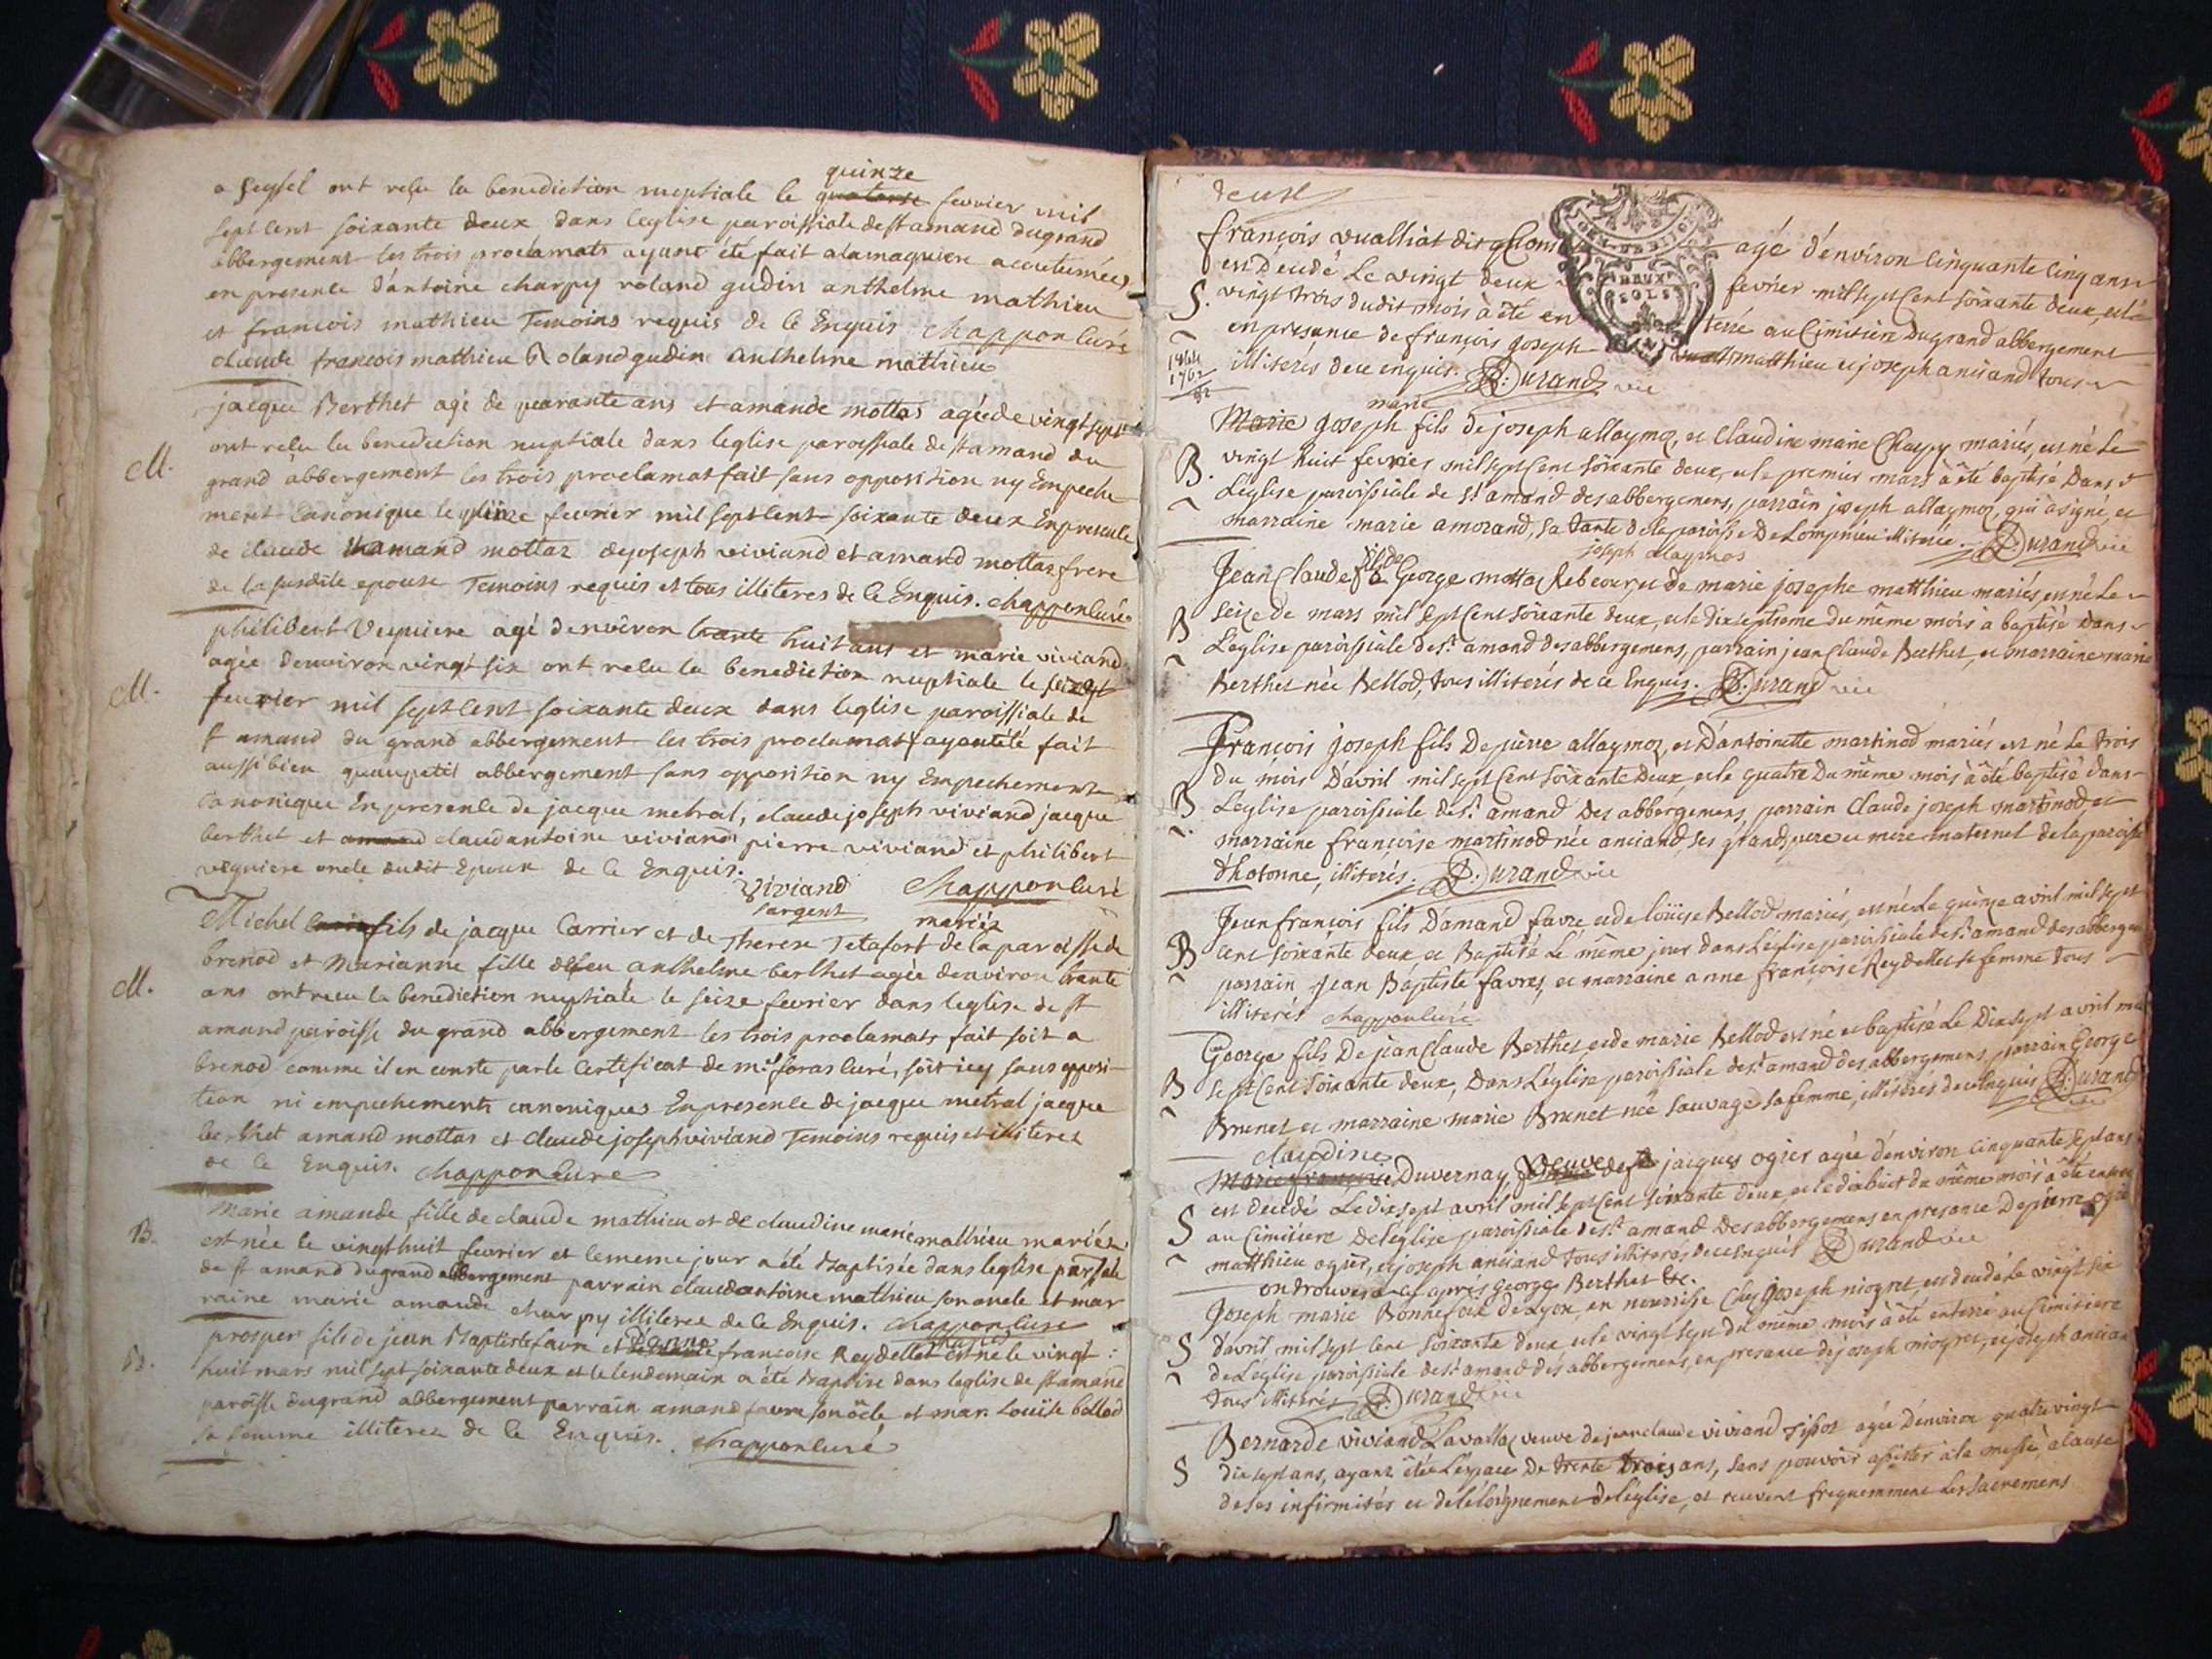 quinze
a seyssel ont reçu la benediction nuptiale le quatorse fevrier mil
sept cent soixante deux dans leglise paroissiale de st amand du grand
abbergement les trois proclamats ayant été fait a la maquiere accoutumées
en presence d'antoine charpy roland gudin anthelme mathieu
et francois mathieu Temoins requis de ce Enquis chappon curé
claude francois mathieu Roland gudin anthelme mathieu
jacque Berthet agé de quarante ans et amande mottas agée de vingt sept
M. ont recu la benediction nuptiale dans leglise paroissiale de st amand du
grand abbergement les trois proclamat fait sans opposition ny Empeche
ment canonique le quinze fevrier mil sept cent soixante deux En presence
de claude amand mottaz de joseph viviand et amand mottaz frere
de la susdite epouse Temoins requis et tous illiteres de ce Enquis. chappon curé
philibert Vequiere agé denviron trante huit ans et marie viviand
agée denviron vingt six ont recu la benediction nuptiale le seize
M. fevrier mil sept cent soixante deux dans leglise paroissiale de
st amand du grand abbergement les trois proclamat ayant été fait
aussi bien quau petit abbergement sans opposition ny Empechement
canonique En presence de jacque metral, claude joseph viviand jacque
berthet et amand claud antoine viviand pierre viviand et philibert
vequiere oncle dudit Epoux de ce Enquis.
viviand chappon curé
sargent mariéz
Michel fils de jacque Carrier et de Therese Tetafort de la paroisse de
brenod et Marianne fille de feu anthelme berthet agée denviron trante
M. ans ont recu la benediction nuptiale le seize fevrier dans leglise de st
amand paroisse du grand abbergement les trois proclamats fait soit a
brenod comme il en conste par le Certificat de mr foras curé, soit icy sans opposi
tion ni empechements canoniques En presence de jacque metral jacque
berthet amand mottas et claude joseph viviand Temoins requis et illiteres
de ce Enquis. chappon curé
Marie amande fille de claude mathieu et de claudine marie mathieu mariéz
B. est née le vingt huit fevrier et le meme jour a été Baptisée dans leglise
de st amand du grand abbergement parrain claud antoine mathieu son oncle et mar
raine marie amande charpy illiteres de ce Enquis. chappon curé
prosper fils de jean Baptiste favre et Danne francoise Reydellet est né le vingt
B. huit mars mil sept soixante deux et le lendemain a été Baptise dans leglise de st amand
paroisse du grand abbergement parrain amand favre son öcle et mar. Louise bellod
sa femme illiteres de ce Enquis. chappon curé
deuse
françois vualliat dis agé d'environ cinquante cinq ans
est decedé Le vingt deux fevrier mil sept Cent soixante deux, et le
S. vingt trois dudit mois à été enterré au Cimitiere du grand abbergement
en presance de françois joseph matthieu et joseph anciand tous
illiterés de ce enquis. D: Durand vic
1844
1762
82
marie
Marie joseph fils de joseph allaymoz, et Claudine marie Charpy mariés, est né Le
B. vingt huit fevrier mil sept Cent soixante deux, et le premier mars à été baptisé Dans
L'eglise paroissiale de st. amand des abbergemens, parrain joseph allaymoz, qui à signé, et
marraine marie amorand, sa tante de la paroisse De Lompnieu illiterée. D: Durand vic
joseph alaymos
Jean Claude fils de George mottaz Rebcour, et de marie josephe matthieu mariés, est né Le
B seize de mars mil sept Cent soixante deux, et le dix septieme du même mois à baptisé dans
L'eglise paroissiale de st. amand des abbergemens, parrain jean Claude Berthet, et marraine marie
Berthet née Bellod, tous illiterés de ce Enquis. D: Durand vic
François joseph fils De pierre allaymoz, et D'antoinette martinod mariés est né Le trois
du mois D'avril mil sept Cent soixante Deux, et le quatre Du même mois à été baptisé dans
B L'eglise paroissiale de st. amand Des abbergemens, parrain Claude joseph martinod et
marraine françoise martinod née anciand, ses grand pere et mere maternel de la paroisse
d'hotonne, illiterés. D: Durand vic
Jean françois fils D'amand favre, et de loüise Bellod mariés, est né Le quinze avril mil sept
B cent soixante deux, et Baptisé Le même jour dans L'eglise paroissiale de st. amand des abbergemens
parrain Jean Baptiste favre, et marraine anne françoise Reydellet sa femme tous
illiterés chappon curé
George fils De jean Claude Berthet et de marie Bellod est né et baptisé Le Dix sept avril mil
B sept Cent soixante deux, Dans L'eglise paroissiale de st. amand des abbergemens, parrain George
Brunet et marraine marie Brunet née sauvage sa femme, illiterés de ce enquis D: Durand
vic
claudine
Marie françoise Duvernay, veuve de jacques ogier agée d'environ cinquante sept ans
est decedé Le dix sept avril mil sept Cent soixante deux, et le dix huit du même mois à été enterré
S au Cimitiere De l'eglise paroissiale de st. amand Des abbergemens en presance De pierre ogier
matthieu ogier, et joseph anciand tous illiteres de ce enquis D: Durand vic
on trouvera cy après George Berthet &c.
Joseph marie Bonnefoix de Lyon, en nourrisse Chez joseph niogret, est decedé Le vingt six
S d'avril mil sept Cent soixante deux, et le vingt sept du même mois à été enterré au Cimitiere
de L'eglise paroissiale de st. amand des abbergemens, en presance de joseph niogret, et joseph ancian
tous illiterés D: Durand vic
Bernarde viviand Lavallaz veuve de jean claude viviand Tissot agée d'environ quatre vingt
S dix sept ans, ayant été L'espace De trente trois ans, sans pouvoir assister à la messe, à cause
de ses infirmités et de l'eloignement de l'eglise, et recevant frequemment Les sacremens